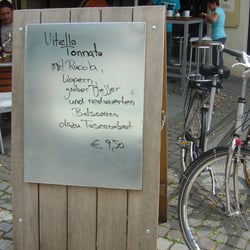 Vitello
Tonnato
mit Rucola,
Kapern,
grober Pfeffer
und reduzierten
Balsamico
dazu Toscanabrot
€ 9,50